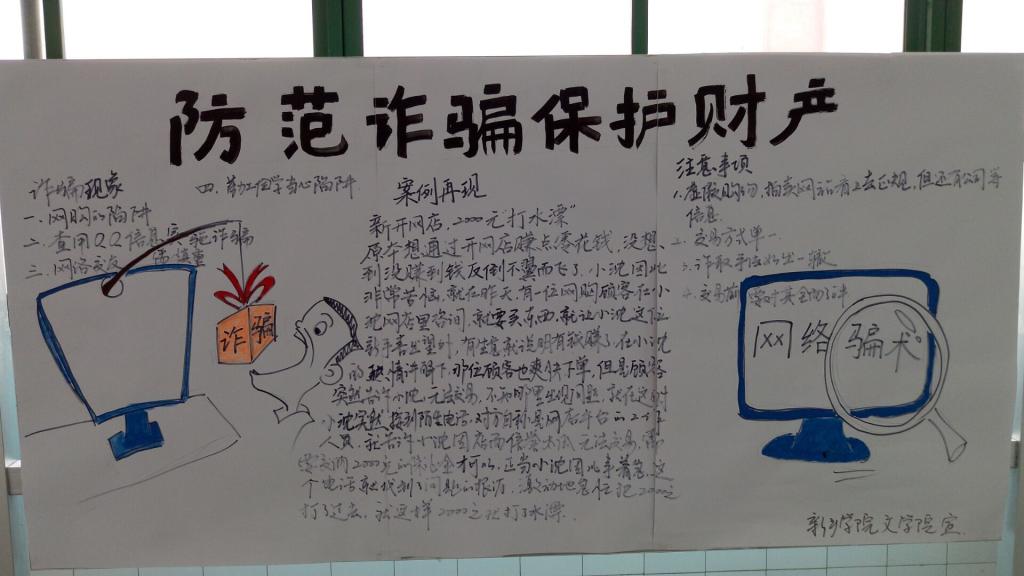 防范诈骗保护财产
诈骗现象
一、网购的陷阱
二、查用QQ信息 诈骗
三、网络交友 慎重
四、勤工俭学当心陷阱
诈骗
案例再现
新开网店,2000元"打水漂"
原本想通过开网店赚点零花钱,没想
到没赚到钱反倒不翼而飞了,小沈因此
非常苦恼,就在昨天,有一位网购顾客在小
沈网店里咨询,就要买东西,就让小沈这位
新手喜出望外,有生意就说明有钱赚了,在小沈
的热情讲解下,那位顾客也爽快下单,但是顾客
突然告诉小沈无法交易,不知哪里出现问题,就在这时
小沈突然接到陌生电话,对方自称是网店平台的工作
人员,并告诉小沈因店面信誉太低无法交易,需
要交纳2000元的 金才可以,正当小沈因此事着急,这
个电话就找到了问题的根源,激动地急忙把2000元
打了过去,就这样2000元就打了水漂.
注意事项
1.虚假购物、拍卖网站看上去正规,但还有公司等
信息
2.交易方式单一
3.诈取手法如出一辙
4.交易前
XX网络骗术
学院文学院宣